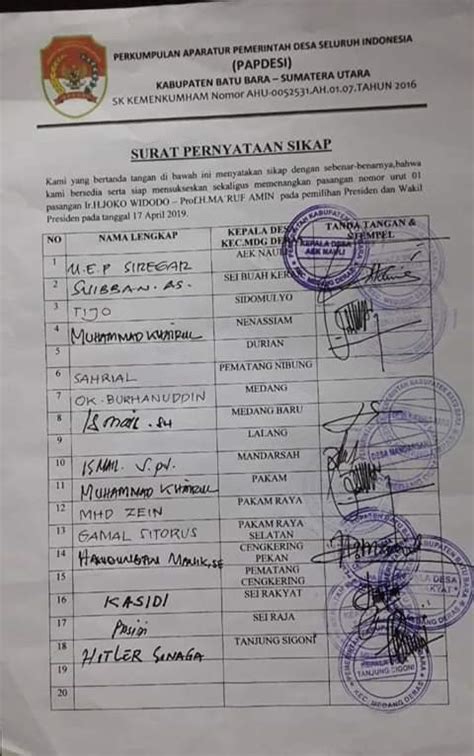 PERKUMPULAN APARATUR PEMERINTAH DESA SELURUH INDONESIA
(PAPDESI)
KABUPATEN BATU BARA – SUMATERA UTARA
SK KEMENKUMHAM Nomor AHU-0052531,AH.01.07.TAHUN 2016
SURAT PERNYATAAN SIKAP
Kami yang bertanda tangan di bawah ini menyatakan sikap dengan sebenar-benarnya,bahwa
kami bersedia serta siap mensukseskan sekaligus memenangkan pasangan nomor urut 01
pasangan Ir.H.JOKO WIDODO – Prof.H.MA'RUF AMIN pada pemilihan Presiden dan Wakil
Presiden pada tanggal 17 April 2019.
NO NAMA LENGKAP KEPALA DESA KEC.MDG DERAS TANDA TANGAN & STEMPEL
1 M.E.P SIREGAR AEK NAULI
2 SUIBBAN. AS. SEI BUAH KERAS
3 TIJO SIDOMULYO
4 MUHAMMAD KHAIRUL NENASSIAM
5 DURIAN
6 SAHRIAL PEMATANG NIBUNG
7 OK. BURHANUDDIN MEDANG
8 ISMAIL. SH MEDANG BARU
9 LALANG
10 ISMAIL S.pd. MANDARSAH
11 MUHAMMAD KHAIRUL PAKAM
12 MHD ZEIN PAKAM RAYA
13 GAMAL SITORUS PAKAM RAYA SELATAN
14 MANIK, SE CENGKERING PEKAN
15 PEMATANG CENGKERING
16 KASIDI SEI RAKYAT
17 SEI RAJA
18 HITLER SINAGA TANJUNG SIGONI
19
20
KEPALA DESA
AEK NAULI
DESA MANDARSAH
TANJUNG SIGONI
KEC. MEDANG DERAS